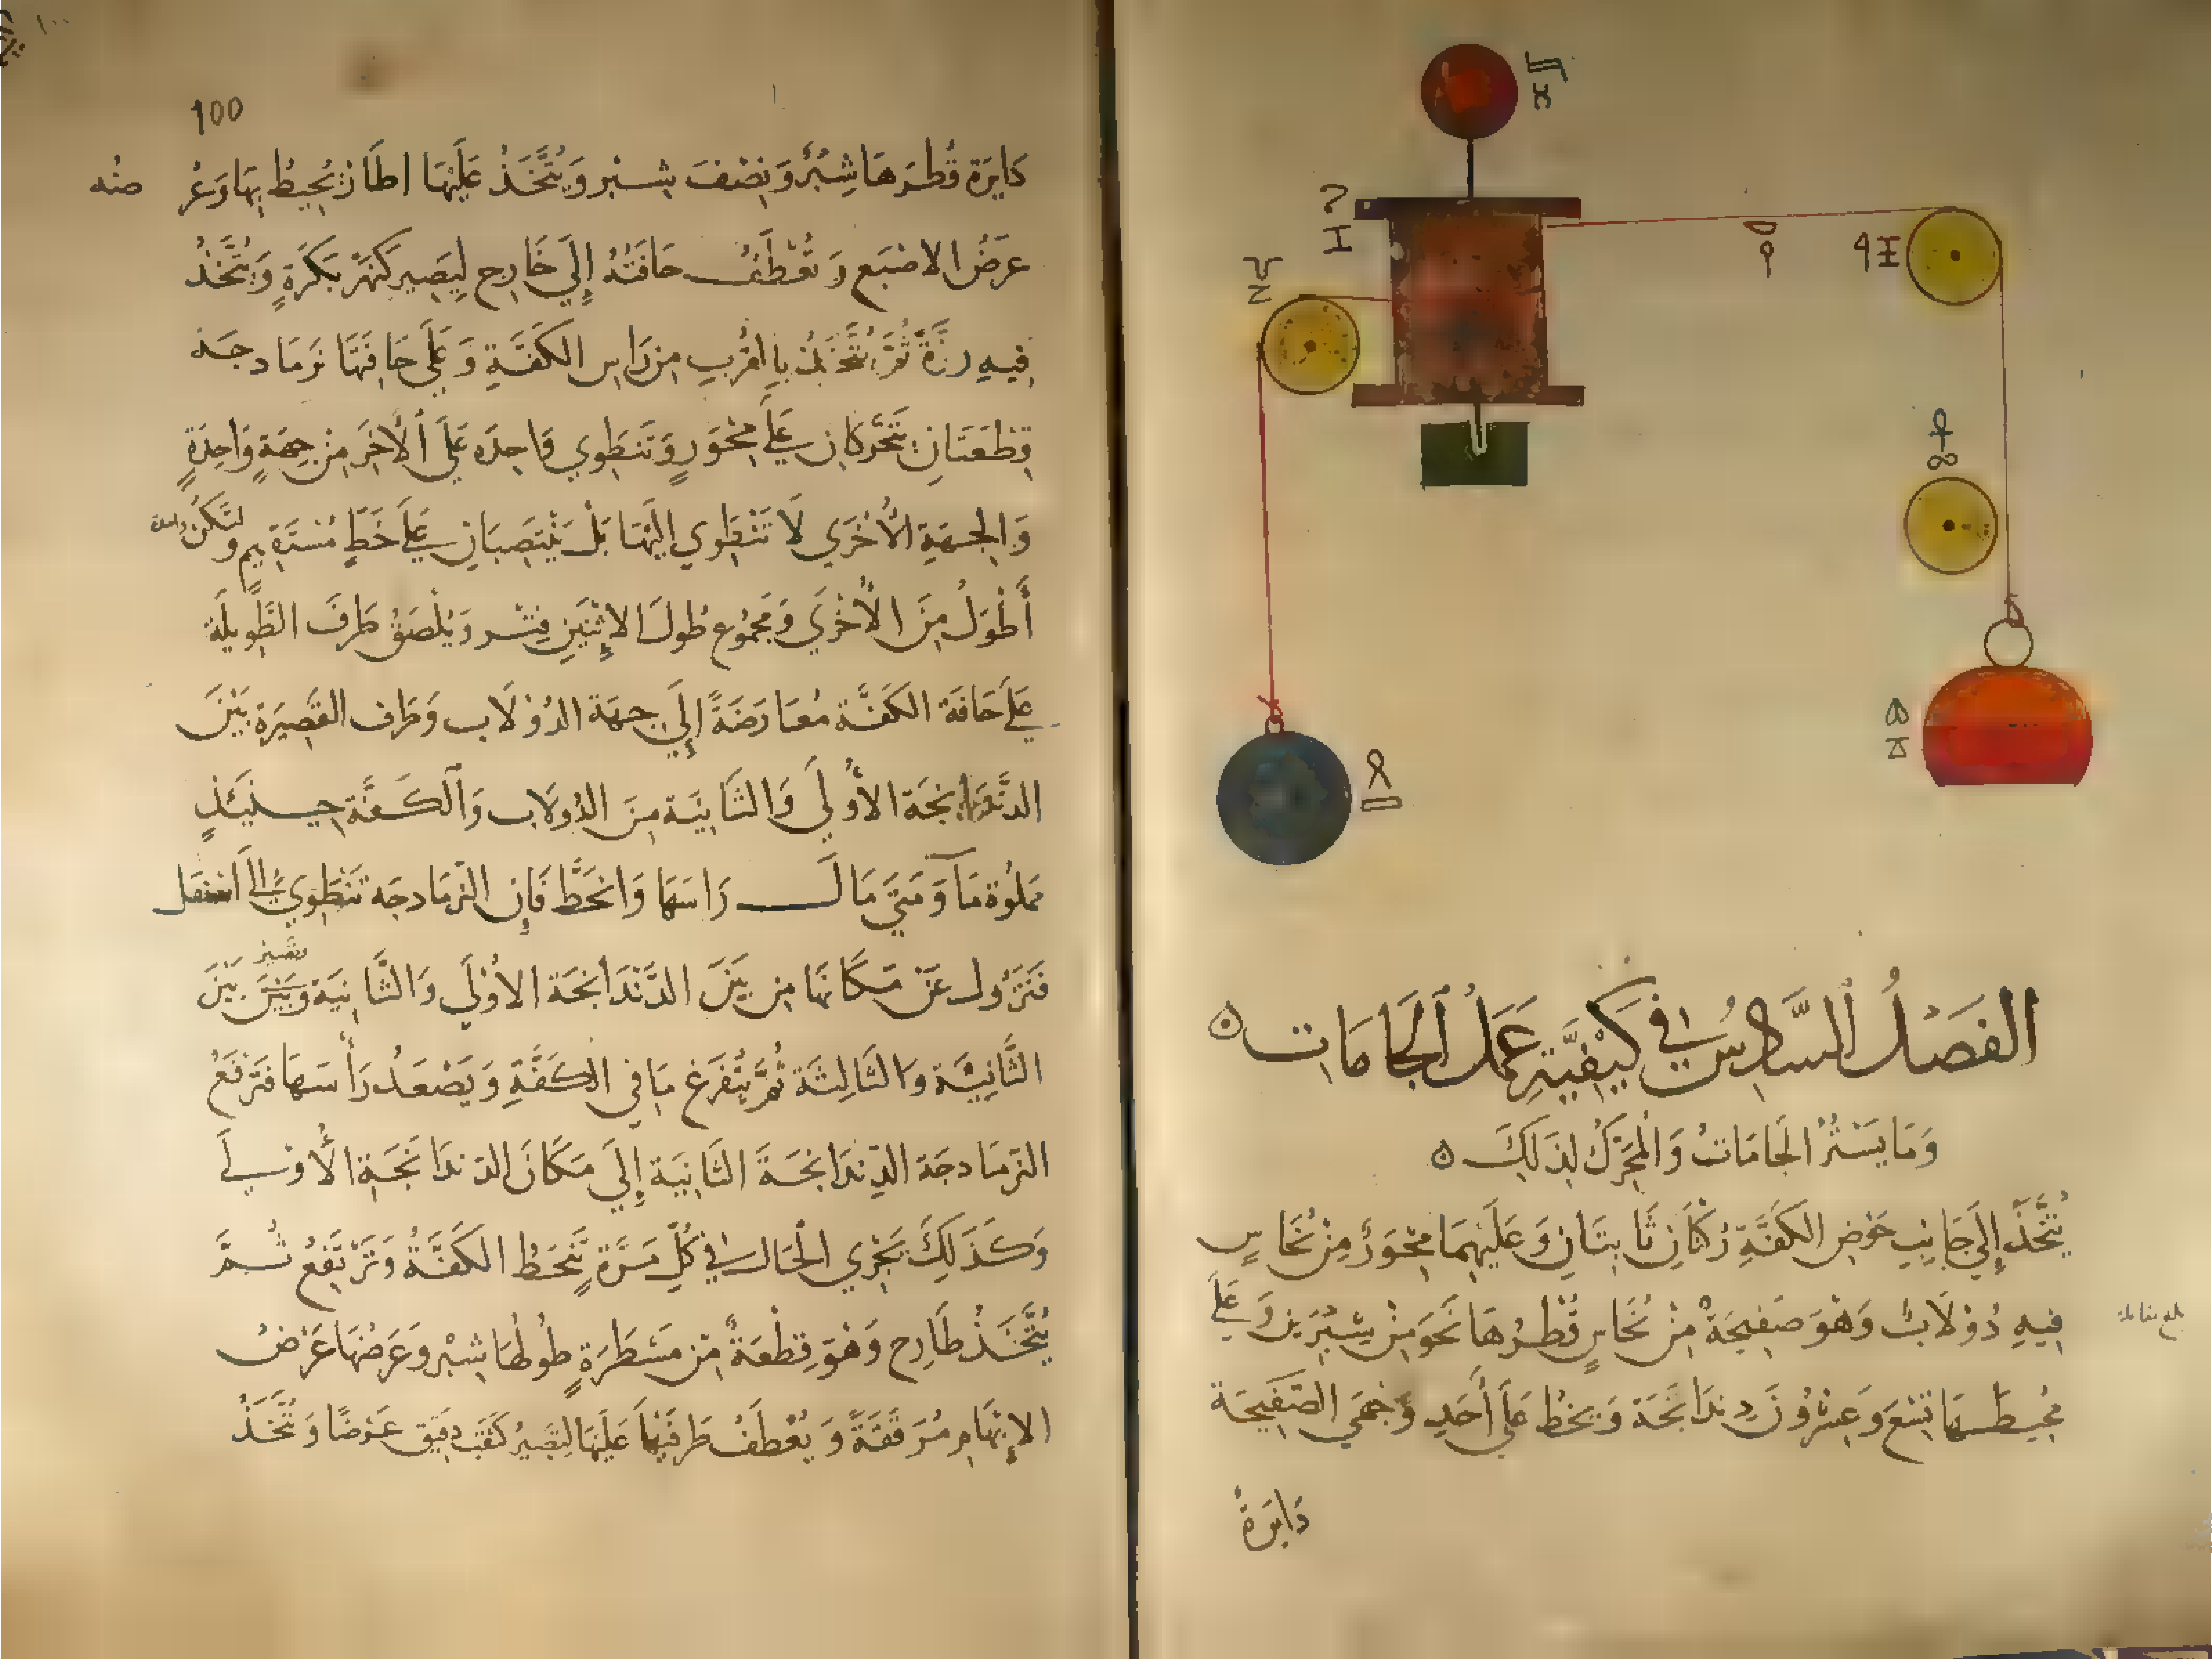 الفَصْلُ السَّادِسُ فِي كَيْفِيَّةِ عَمَلِ الجَامَاتِ ٥
وَمَا يَسْتُرُ الجَامَاتِ وَالمُحَرِّكُ لِذَلِكَ ٥
يُتَّخَذُ إِلَى جَانِبِ حَوْضِ الكَفَّةِ رُكْنَانِ ثَابِتَانِ وَعَلَيْهِمَا مِحْوَرٌ مِنْ نُحَاسٍ
فِيهِ دُوْلَابٌ وَهُوَ صَفِيحَةٌ مِنْ نُحَاسٍ قُطْرُهَا نَحْوَ مِنْ شِبْرَيْنِ وَعَلَى
مُحِيطِهَا تِسْعَ وَعِشْرُونَ دِنْدَانَجَةً وَيُخَطُّ عَلَى أَحَدِ وَجْهَيِ الصَّفِيحَةِ
دَايِرَةٌ
100
دَايِرَة قُطْرُهَا شِبْرٌ وَنِصْفَ شِبْرٍ وَيُتَّخَذُ عَلَيْهَا اطَارٌ يُحِيطُ بِهَا وَعَرْ منه
عَرْضُ الاصْبَعِ وَتُعْطَفُ حَافَتُهُ إِلَى خَارِج لِيَصِير كَنَهْرِ بَكَرَةٍ وَيُتَّخَذُ
فِيهِ رَزَّةٌ ثُمَّ يُتَّخَذُ بِالقُرْبِ مِن رَاسِ الكَفَّةِ وَعَلَى حَافَتِهَا نَرمَادجَة
قِطْعَتَانِ تَتَحَرَّكَانِ عَلَى مِحْوَرٍ وَتَنْطَوِي وَاحِدَه عَلَى الأُخْرَى مِنْ جِهَةٍ وَاحِدَةٍ
وَالجِهَةِ الأُخْرَى لَا تَنْطَوِي إِلَيْهَا بَلْ يَنْتَصِبَانِ عَلَى خَطٍّ مُسْتَقِيمٍ وَلتَكُنْ واحدة
أَطْوَلُ مِنَ الأُخْرَى وَمَجْمُوعُ طُولِ الإِثْنَيْنِ فِتْر وَيُلْصَقُ طَرَفَ الطَّوِيلَة
عَلَى حَافَة الكَفَّة مُعَارَضَةً إِلَى جِهَة الدُوْلَاب وَطَرَف القَصِيرَة بَيْنَ
الدَّنْدَانَجَة الأُولَى وَالثَّانِيَة مِنَ الدُولَاب وَالكَفَّة حِينَئِذٍ
مَملُوَة مَآ وَمَتَى مَالَ رَاسَهَا وَانْحَطَّ فَإِن النَرمَادجَه تَنْطَوِي إِلَى اسْفَل
فَتَزُول عَنْ مَكَانِهَا مِن بَيْنِ الدَّنْدَانجَة الأُوْلَى وَالثَّانِيَة وَبَيْنَ تصير بَيْنَ
الثَّانِيَة وَالثَّالِثَة ثُمَّ يَتَفَرَغ مَا فِي الكَفَّةِ وَيَصْعَدُ رَأْسَهَا فَتَرْفَعُ
النَرمَادجَة الدِنْدَانجَةَ الثَّانِيَة إِلَى مَكَانَ الدنْدَانَجَةِ الأُوْلَى
وَكَذَلِكَ يَجْرِي الحَال فِي كُلِّ مَرَّةٍ تَنْحَطُ الكَفَّةُ وَتَرْتَفِعُ ثُمَّ
يُتَّخَذُ طَارِح وَهُوَ قِطْعَةٌ مِنْ مَسْطَرَةٍ طُولُهَا شِبْر وَعَرضُهَا عَرْضُ
الإِبْهَام مُرَقَّقَةً وَيُعْطَفُ طَرَفَيْهَا عَلَيْهَا لِتَصِيرُ